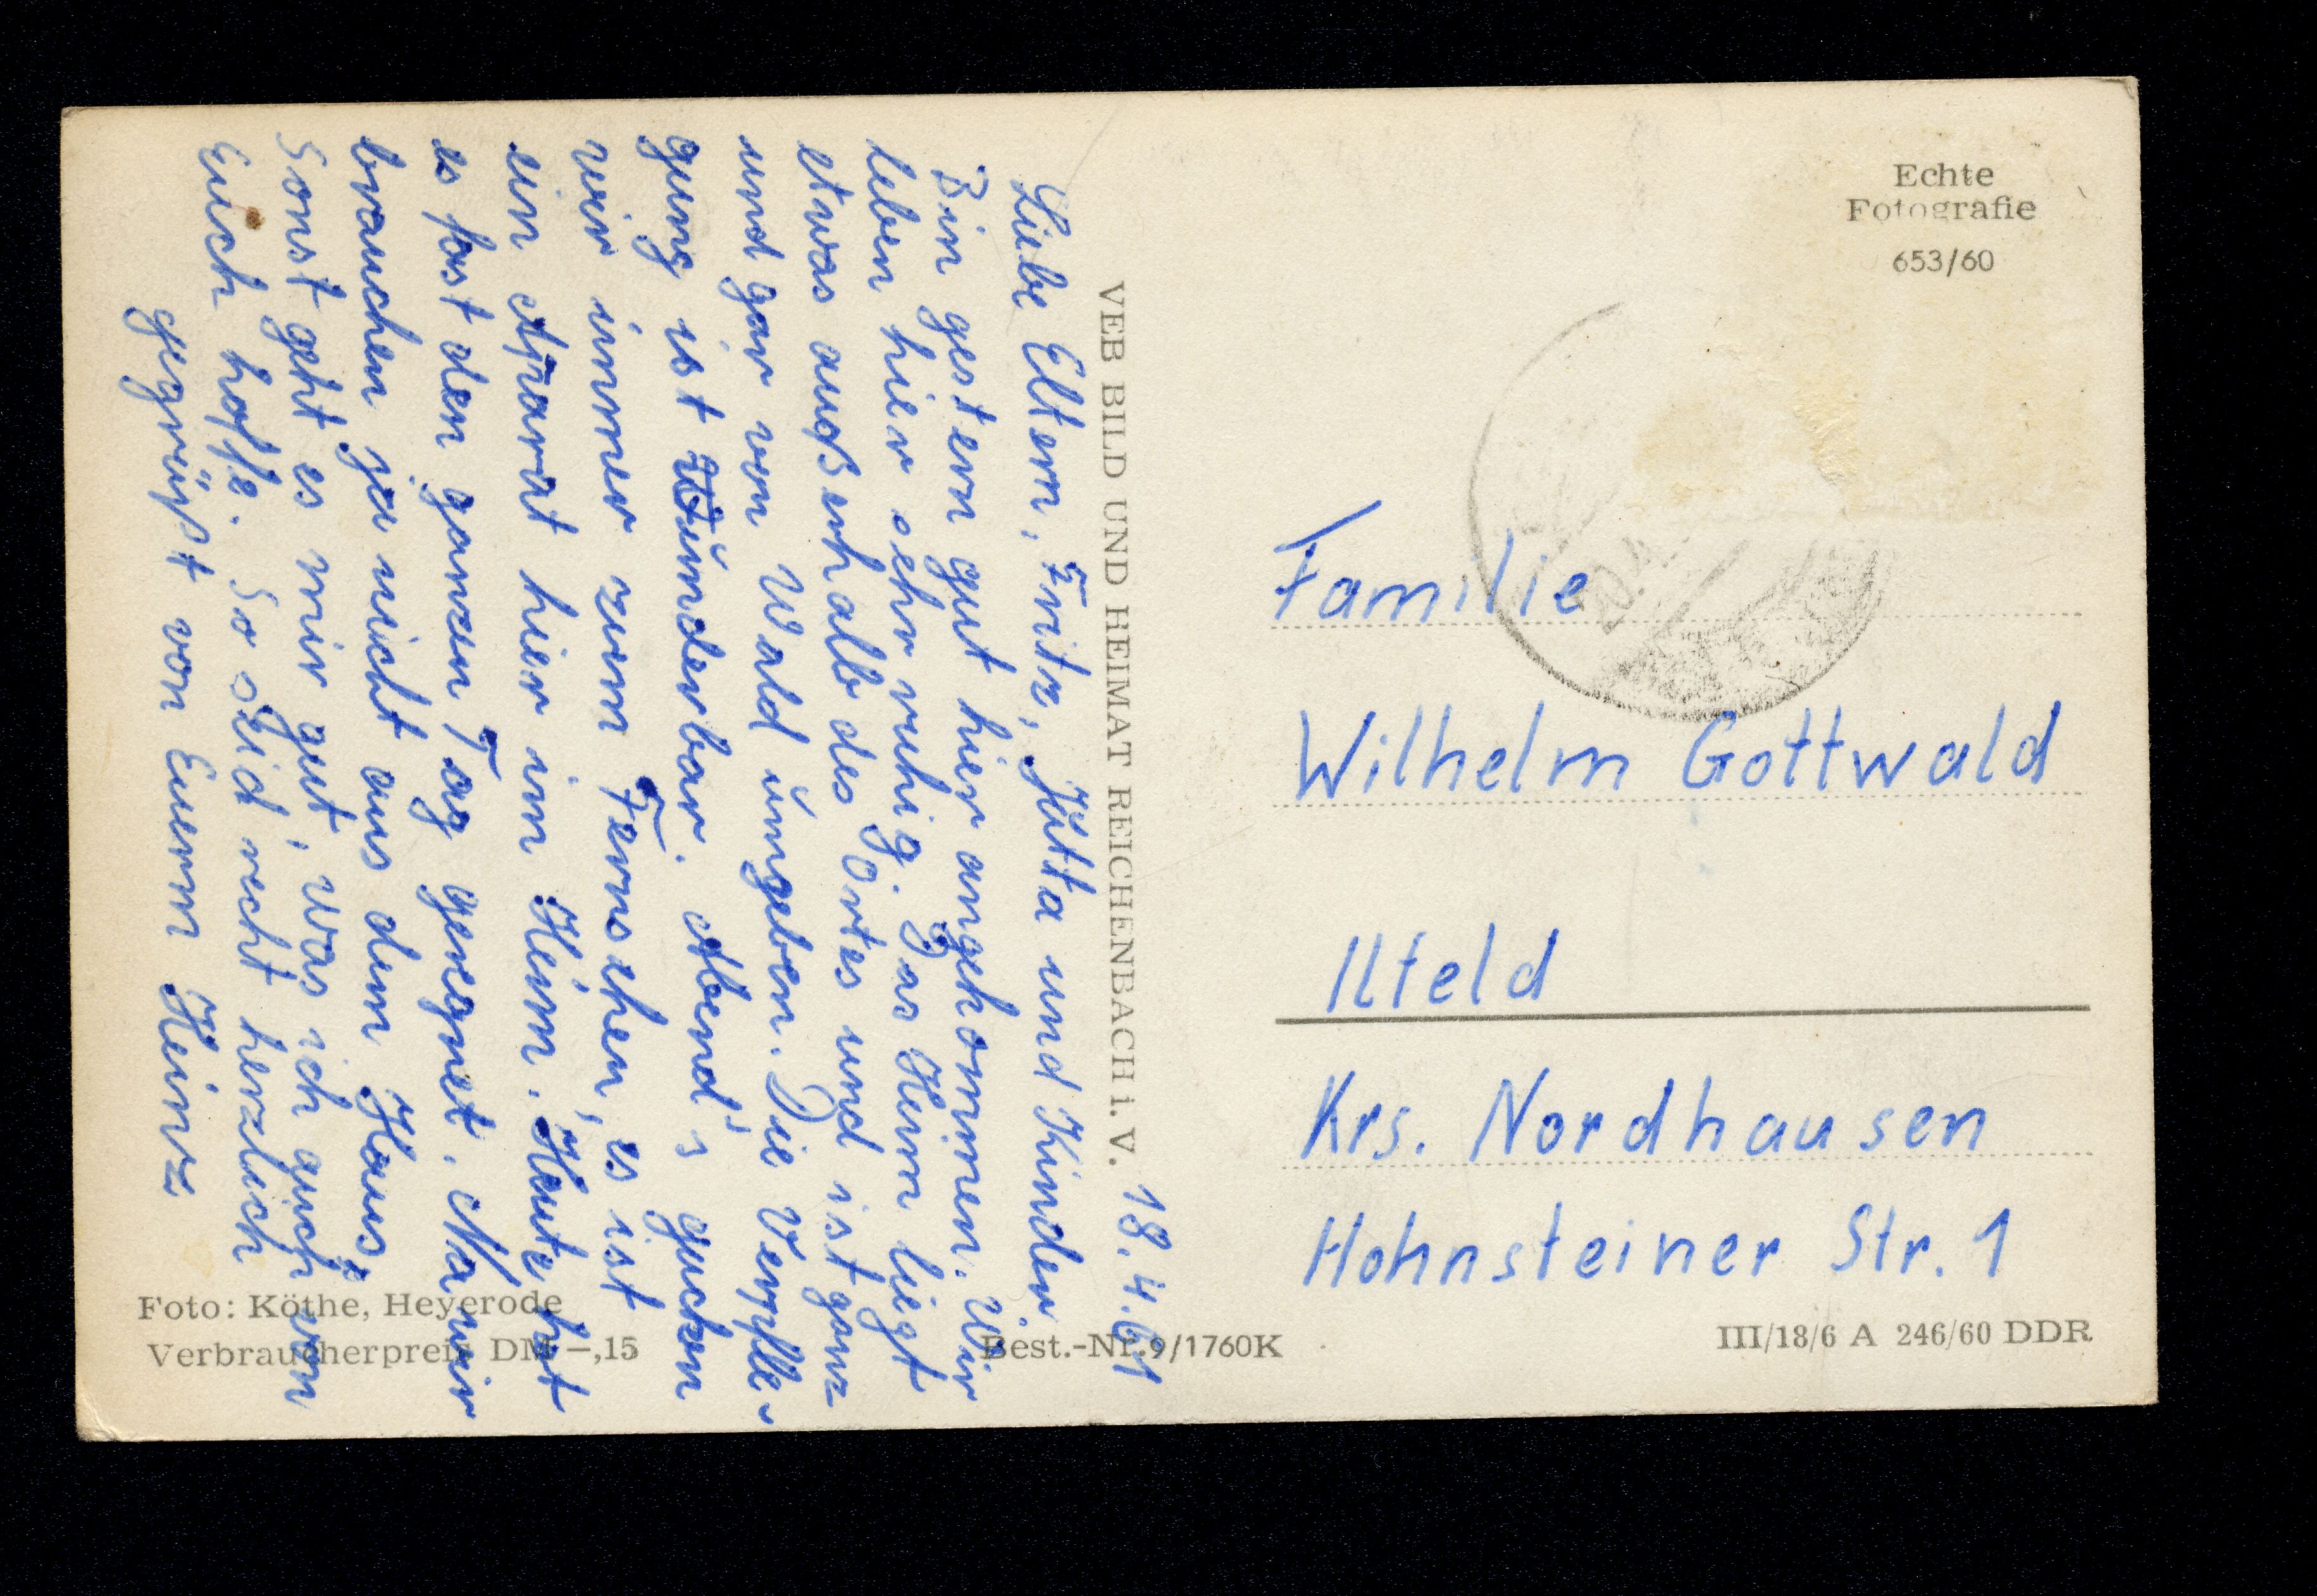 18.4.61
Liebe Eltern, Fritz, Jutta und Kinder.
Bin gestern gut hier angekommen. Wir
leben hier sehr ruhig. Das Heim liegt
etwas außerhalb des Ortes und ist ganz
und gar von Wald umgeben. Die Verpfle-
gung ist Wunderbar. Abend's gucken
wir immer zum Fernsehen, es ist
ein Aparat hier im Heim. Heute hat
es fast den ganzen Tag geregnet. Na wir
brauchen ja nicht aus dem Haus.
Sonst geht es mir gut, was ich auch von
Euch hoffe. So seid recht herzlich
gegrüßt von Euerm Heinz
VEB BILD UND HEIMAT REICHENBACH i. V.
Echte
Fotografie
653/60
Familie
Wilhelm Gottwald
Ilfeld
Krs. Nordhausen
Hohnsteiner Str. 1
Foto: Köthe, Heyerode
Verbraucherpreis DM –,15
Best.-Nr. 9/1760K
III/18/6 A 246/60 DDR